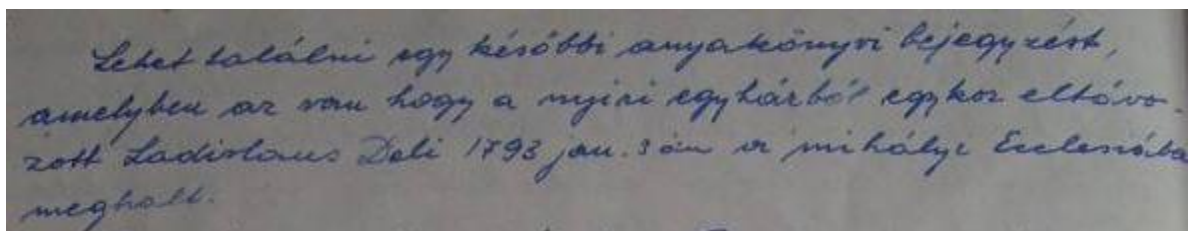 Lehet találni egy későbbi anyakönyvi bejegyzést,
amelyben az van hogy a nyiri egyházból egykor eltávo-
zott Ladislaus Deli 1793 jan. 3 án a mihályi Ecclesiába
meghalt.